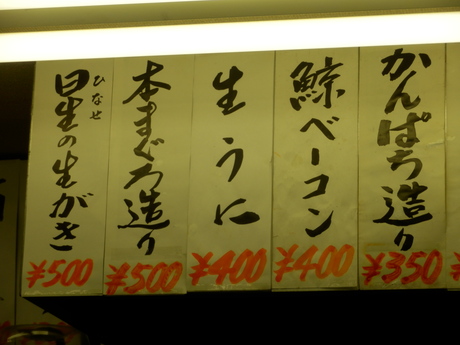 かんぱち造り
¥350
鯨ベーコン
¥400
生うに
¥400
本まぐろ造り
¥500
日生の生がき
ひなせ
¥500